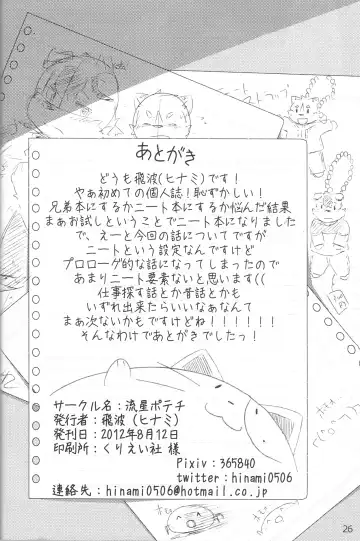 あとがき
どうも飛波(ヒナミ)です!
やぁ初めての個人誌!恥ずかしい!
兄弟本にするかニート本にするか悩んだ結果
まぁお試しということでニート本になりました
で、えーと今回の話についてですが
ニートという設定なんですけど
プロローグ的な話になってしまったので
あまりニート要素ないと思います((
仕事探す話とか昔話とかも
いずれ出来たらいいなぁなんて
まぁ次ないかもですけどね!!!!!!
そんなわけであとがきでしたっ!
サークル名:流星ポテチ
発行者:飛波(ヒナミ)
発刊日:2012年8月12日
印刷所:くりえい社 様
Pixiv:365840
twitter:hinami0506
連絡先:hinami0506@hotmail.co.jp
26